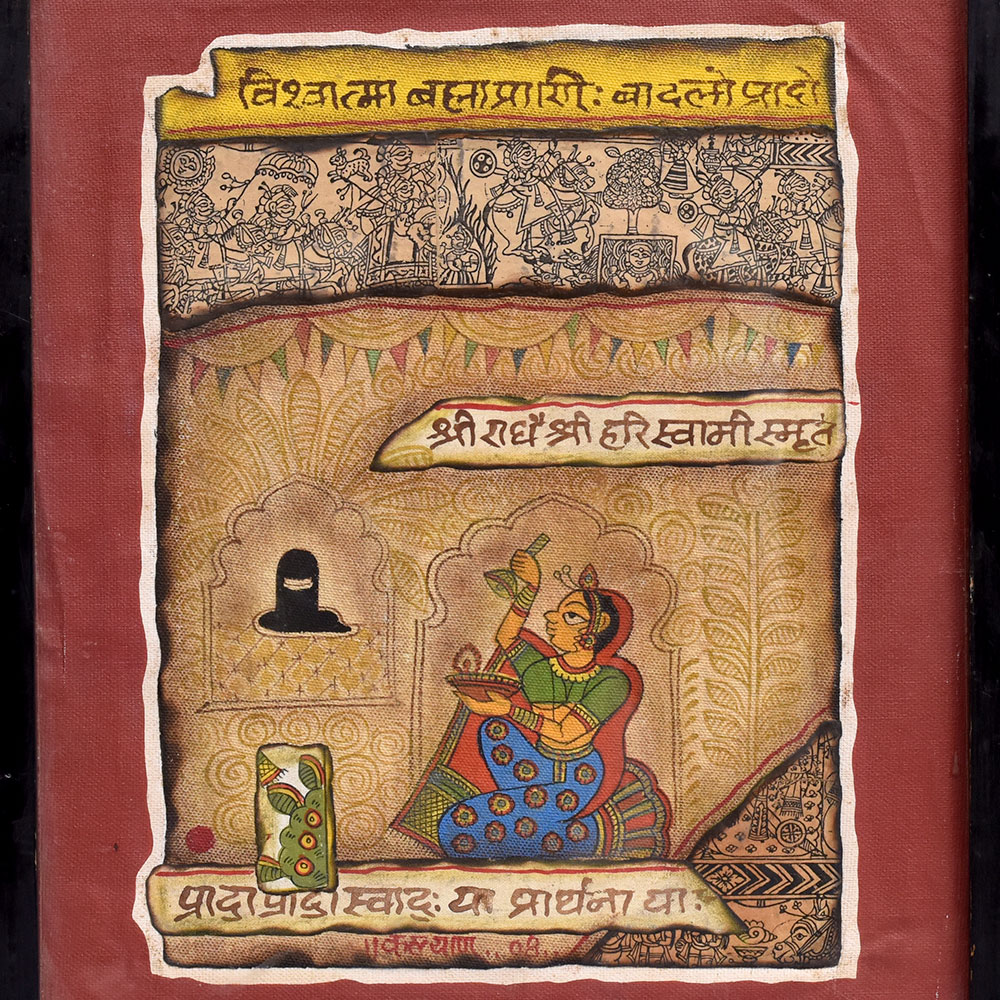 विश्वात्मा ब्रह्मप्राणी: बादलो प्रादो
श्री राधै श्री हरि स्वामी स्मृत
प्रादा प्रादा स्वाद: या प्रार्थना या:
॥ कल्याण ,, 08